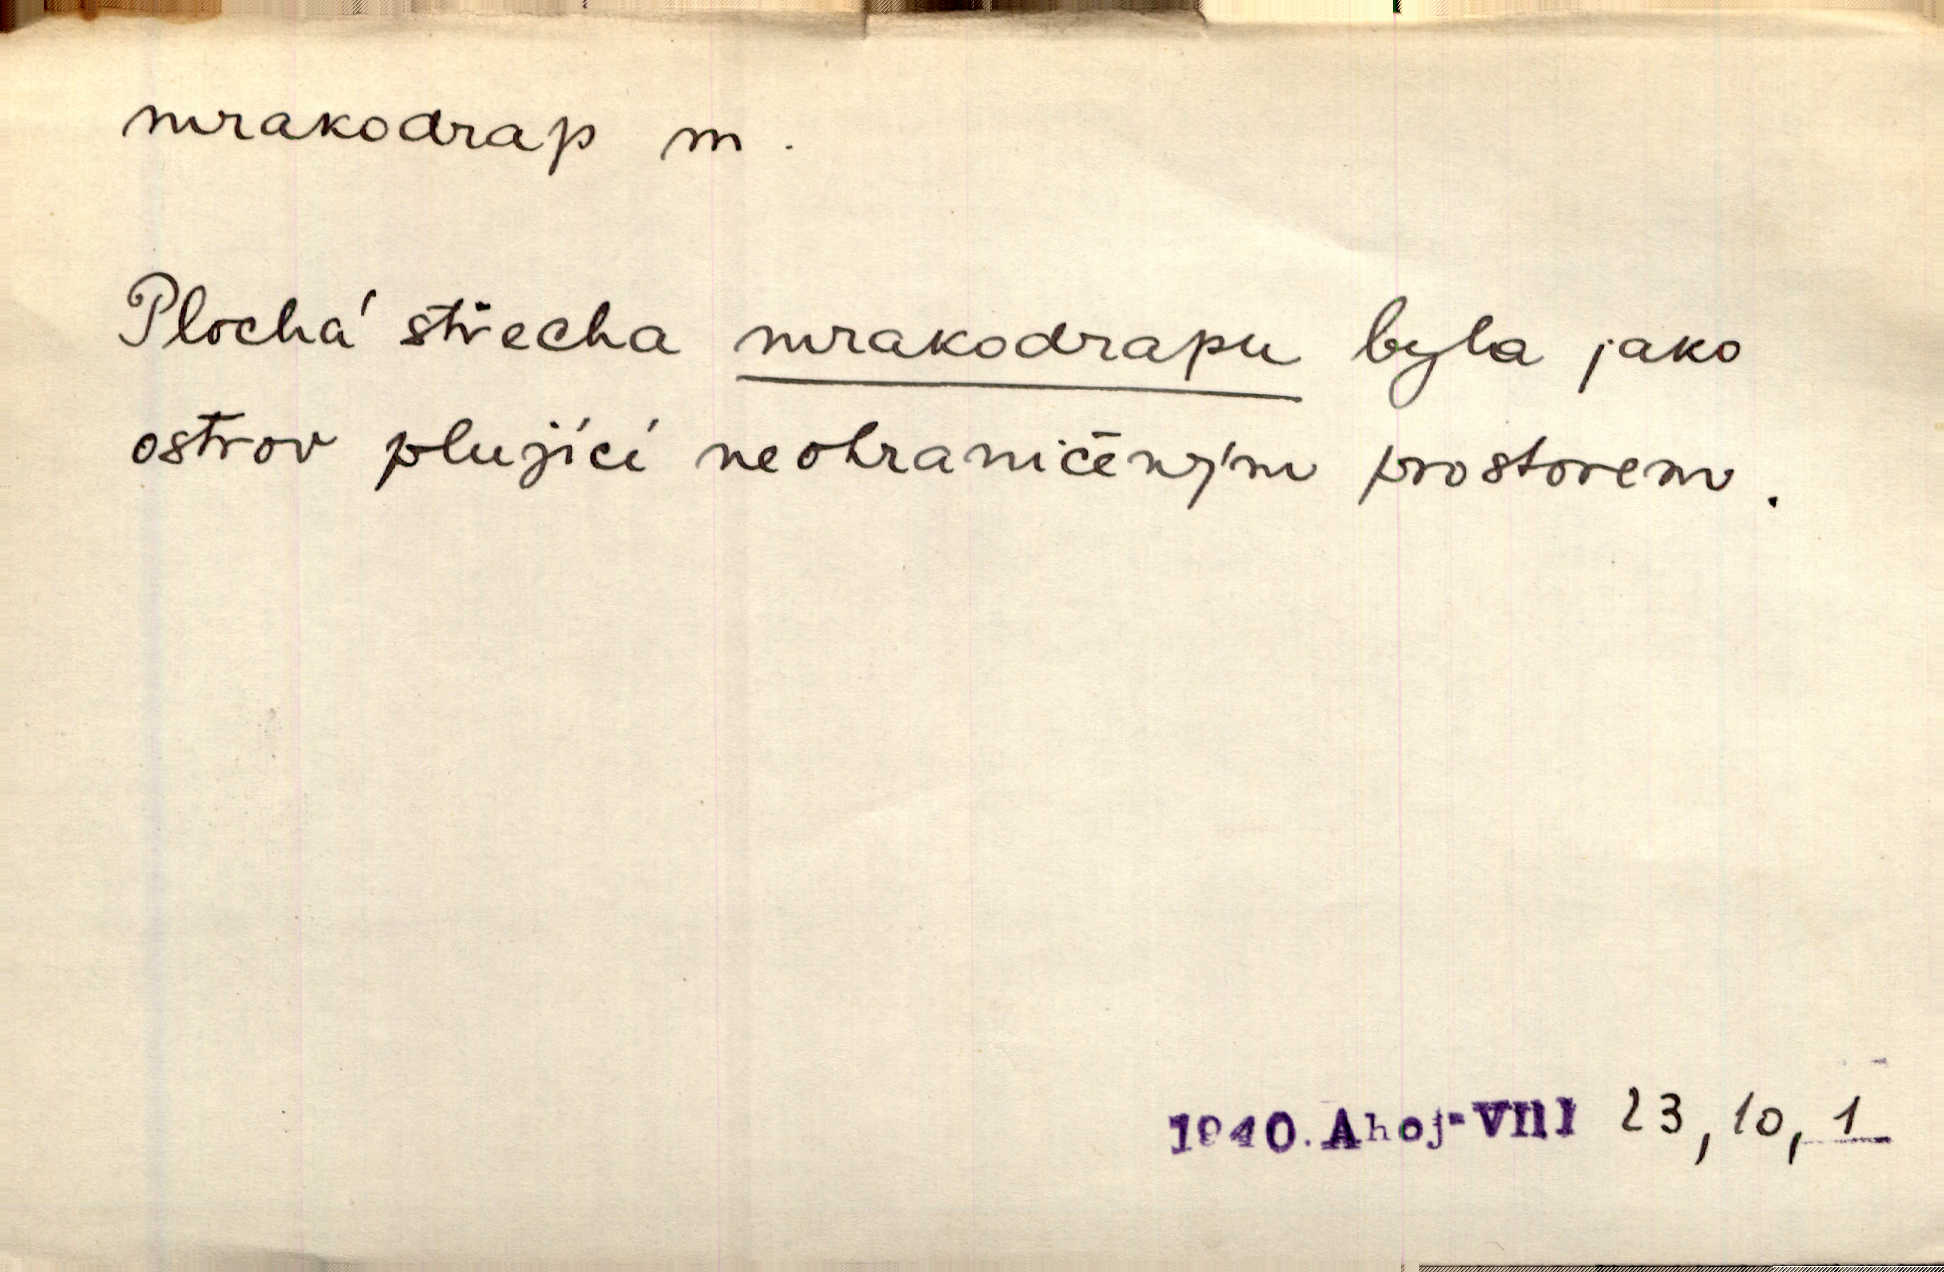 mrakodrap m.
Plochá střecha mrakodrapu byla jako
ostrov plující neohraničeným prostorem.
1940. Ahoj-VIII 23, 10, 1